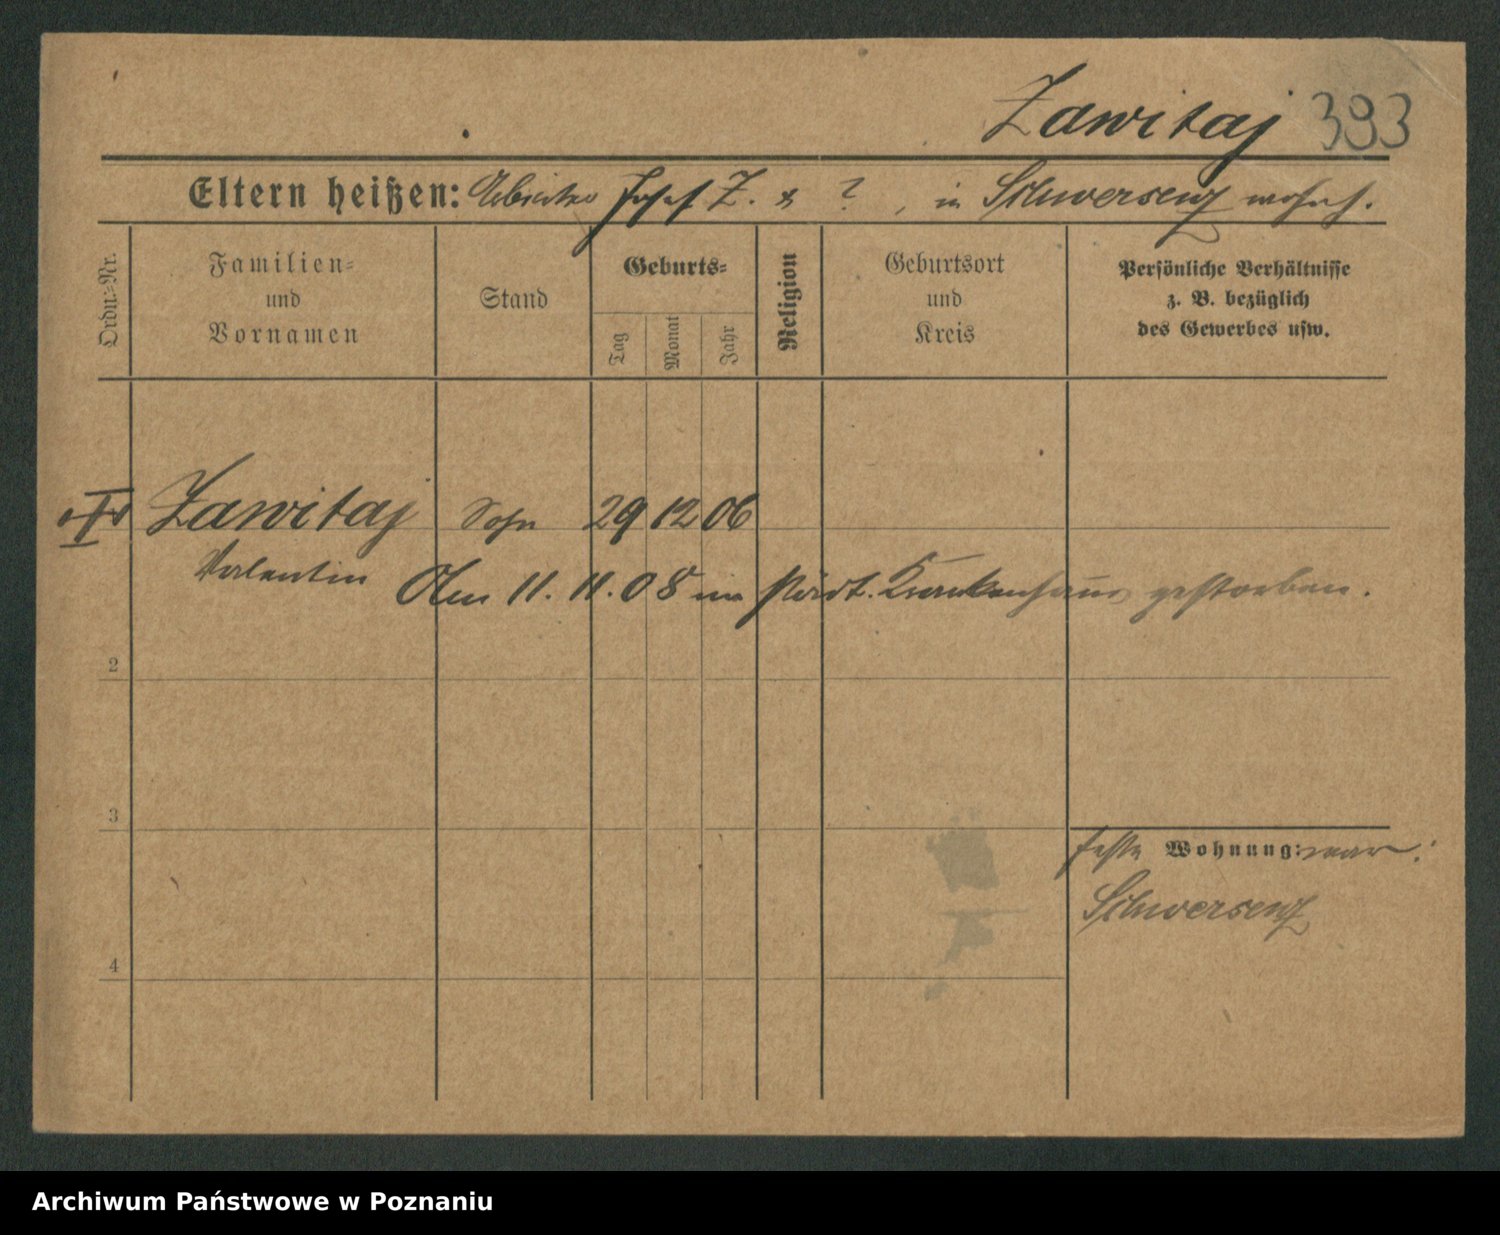 Zawitaj 393
Eltern heißen: Arbeiter Josef Z. & ?, in Schwersenz wohnh.
Ordn.-Nr.
Familien- und Vornamen
Stand
Geburts-
Tag
Monat
Jahr
Religion
Geburtsort und Kreis
Persönliche Verhältnisse
z. B. bezüglich
des Gewerbes usw.
I Zawitaj Sohn 29 12 06
Valentin Am 11.11.08 im städt. Krankenhaus gestorben.
2
3
feste Wohnung: war:
Schwersenz
4
Archiwum Państwowe w Poznaniu